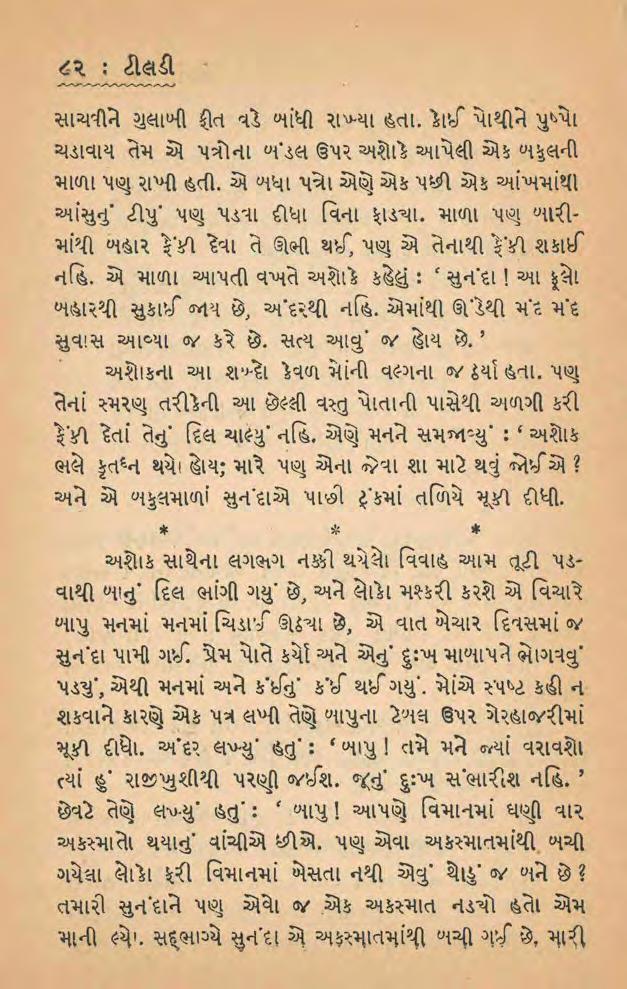 ૮૨ : ટીલડી
સાચવીને ગુલાબી ફીત વડે બાંધી રાખ્યા હતા. કોઈ પોથીને પુષ્પો
ચડાવાય તેમ એ પત્રોના બંડલ ઉપર અશોકે આપેલી એક બકુલની
માળા પણ રાખી હતી. એ બધા પત્રો એણે એક પછી એક આંખમાંથી
આંસુનું ટીપું પણ પડવા દીધા વિના ફાડ્યા. માળા પણ બારી-
માંથી બહાર ફેંકી દેવા તે ઊભી થઈ, પણ એ તેનાથી ફેંકી શકાઈ
નહિ. એ માળા આપતી વખતે અશોકે કહેલું : ‘ સુનંદા ! આ ફૂલો
બહારથી સુકાઈ જાય છે, અંદરથી નહિ. એમાંથી ઊંડેથી મંદ મંદ
સુવાસ આવ્યા જ કરે છે. સત્ય આવું જ હોય છે. ’
અશોકના આ શબ્દો કેવળ મોંની વલ્ગના જ ઠર્યા હતા. પણ
તેનાં સ્મરણ તરીકેની આ છેલ્લી વસ્તુ પોતાની પાસેથી અળગી કરી
ફેંકી દેતાં તેનું દિલ ચાલ્યું નહિ. એણે મનને સમજાવ્યું : ‘ અશોક
ભલે કૃતઘ્ન થયો હોય; મારે પણ એના જેવા શા માટે થવું જોઈએ ?
અને એ બકુલમાળાં સુનંદાએ પાછી ટ્રંકમાં તળિયે મૂકી દીધી.
* * *
અશોક સાથેના લગભગ નક્કી થયેલો વિવાહ આમ તૂટી પડ-
વાથી બાનું દિલ ભાંગી ગયું છે, અને લોકો મશ્કરી કરશે એ વિચારે
બાપુ મનમાં મનમાં ચિડાઈ ઊઠ્યા છે, એ વાત બેચાર દિવસમાં જ
સુનંદા પામી ગઈ. પ્રેમ પોતે કર્યો અને એનું દુઃખ માબાપને ભોગવવું
પડ્યું, એથી મનમાં અને કંઈનું કંઈ થઈ ગયું. મોંએ સ્પષ્ટ કહી ન
શકવાને કારણે એક પત્ર લખી તેણે બાપુના ટેબલ ઉપર ગેરહાજરીમાં
મૂકી દીધો. અંદર લખ્યું હતું : ‘ બાપુ ! તમે મને જ્યાં વરાવશો
ત્યાં હું રાજીખુશીથી પરણી જઈશ. જૂનું દુઃખ સંભારીશ નહિ. ’
છેવટે તેણે લખ્યું હતું : ‘ બાપુ ! આપણે વિમાનમાં ઘણી વાર
અકસ્માતો થયાનું વાંચીએ છીએ. પણ એવા અકસ્માતમાંથી બચી
ગયેલા લોકો ફરી વિમાનમાં બેસતા નથી એવું થોડું જ બને છે ?
તમારી સુનંદાને પણ એવો જ એક અકસ્માત નડ્યો હતો એમ
માની લ્યો. સદ્ભાગ્યે સુનંદા એ અકસ્માતમાંથી બચી ગઈ છે. મારી